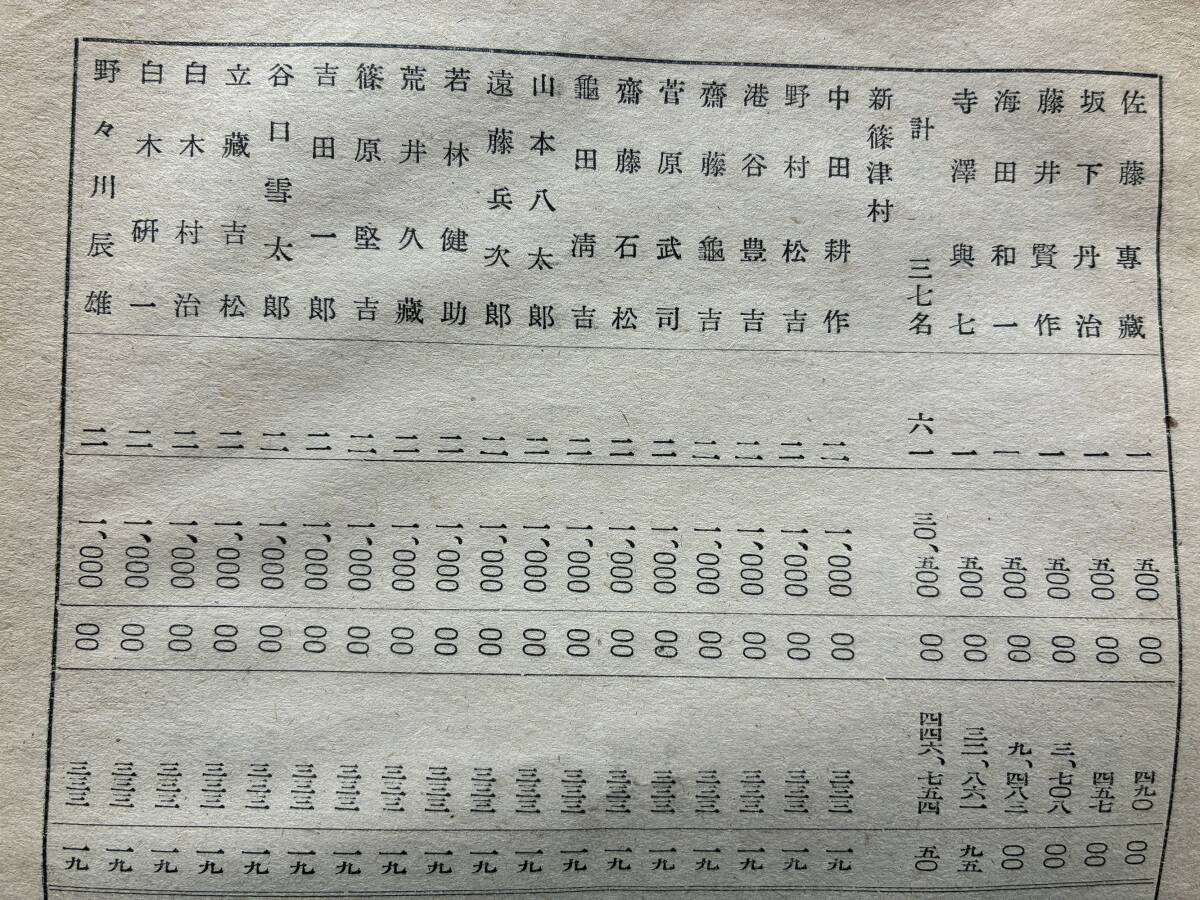 佐藤專藏 一 五〇〇 〇〇 四九〇 〇〇
坂下丹治 一 五〇〇 〇〇 四五七 〇〇
藤井賢作 一 五〇〇 〇〇 三、七〇八 〇〇
海田和一 一 五〇〇 〇〇 九、四八三 〇〇
寺澤與七 一 五〇〇 〇〇 三一、八六一 九五
計 三七名 六一 三〇、五〇〇 〇〇 四四六、七五四 五〇
新篠津村
中田耕作 二 一、〇〇〇 〇〇 三三三 一九
野村松吉 二 一、〇〇〇 〇〇 三三三 一九
港谷豊吉 二 一、〇〇〇 〇〇 三三三 一九
齋藤龜吉 二 一、〇〇〇 〇〇 三三三 一九
菅原武司 二 一、〇〇〇 〇〇 三三三 一九
齋藤石松 二 一、〇〇〇 〇〇 三三三 一九
龜田淸吉 二 一、〇〇〇 〇〇 三三三 一九
山本八太郎 二 一、〇〇〇 〇〇 三三三 一九
遠藤兵次郎 二 一、〇〇〇 〇〇 三三三 一九
若林健助 二 一、〇〇〇 〇〇 三三三 一九
荒井久藏 二 一、〇〇〇 〇〇 三三三 一九
篠原堅吉 二 一、〇〇〇 〇〇 三三三 一九
吉田一郎 二 一、〇〇〇 〇〇 三三三 一九
谷口雪太郎 二 一、〇〇〇 〇〇 三三三 一九
立藏吉松 二 一、〇〇〇 〇〇 三三三 一九
白木村治 二 一、〇〇〇 〇〇 三三三 一九
白木硏一 二 一、〇〇〇 〇〇 三三三 一九
野々川辰雄 二 一、〇〇〇 〇〇 三三三 一九